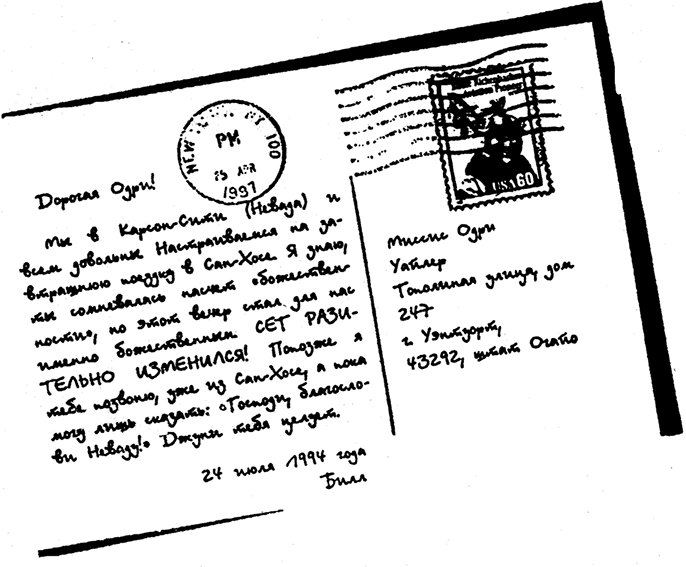 PM
25 APR
1997
USA 60
Дорогая Одри!
Мы в Карсон-Сити (Невада) и
всем довольны. Настраиваемся на за-
втрашнюю поездку в Сан-Хосе. Я знаю,
ты сомневалась насчет «божествен-
ности», но этот вечер стал для нас
именно божественным. СЕТ РАЗИ-
ТЕЛЬНО ИЗМЕНИЛСЯ! Попозже я
тебе позвоню, уже из Сан-Хосе, а пока
могу лишь сказать: «Господи, благосло-
ви Неваду!» Джуни тебя целует.
24 июля 1994 года
Билл
Миссис Одри
Уайлер
Тополиная улица, дом
247
г. Уэнтуорт,
43292, штат Огайо